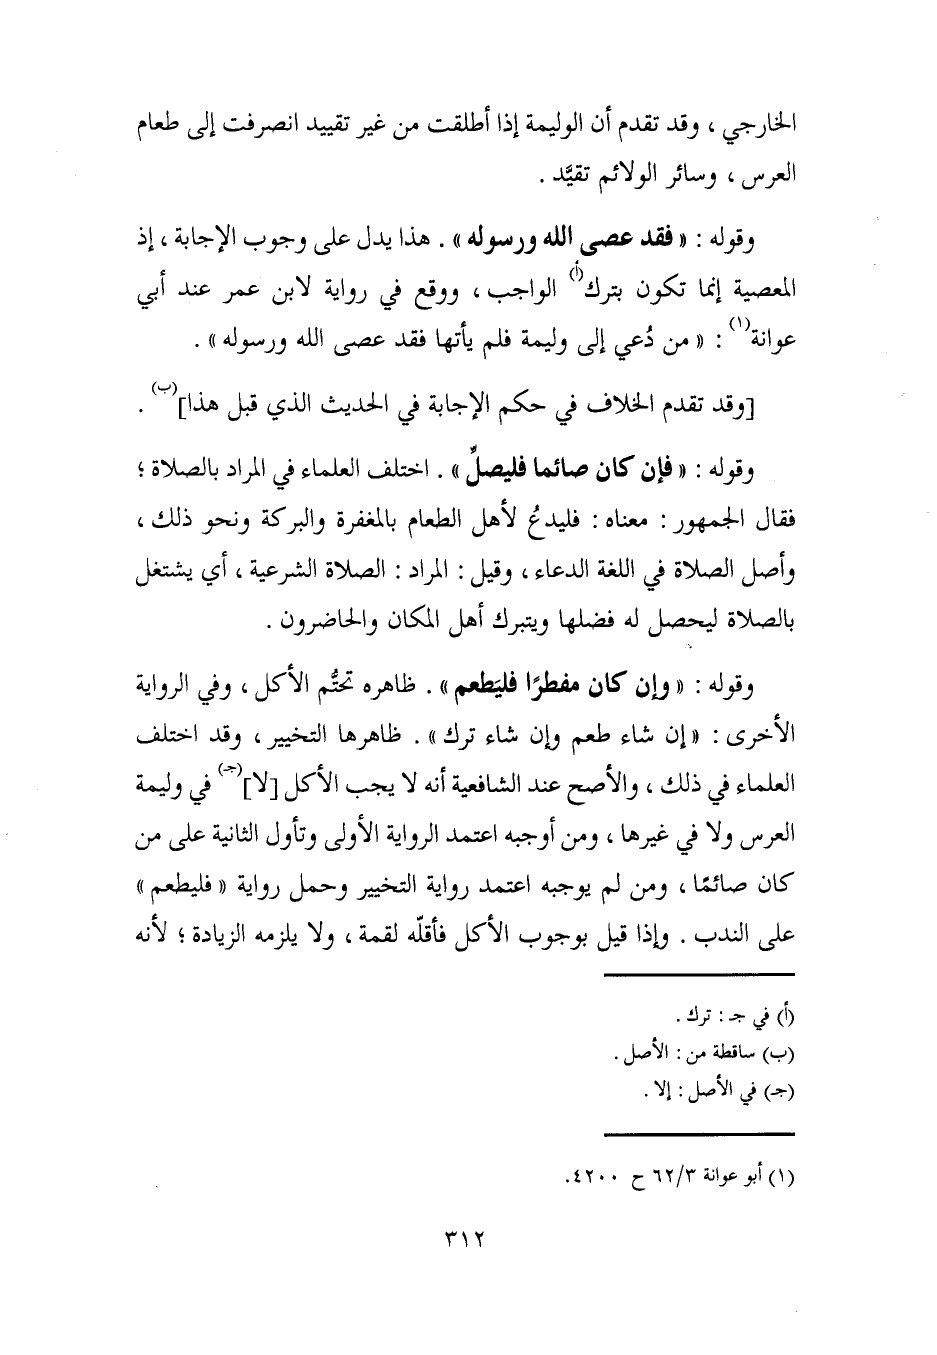 الخارجي ، وقد تقدم أن الوليمة إذا أطلقت من غير تقييد انصرفت إلى طعام
العرس ، وسائر الولائم تقيَّد .
وقوله : « فقد عصى الله ورسوله » . هذا يدل على وجوب الإجابة ، إذ
المعصية إنما تكون بترك(أ) الواجب ، ووقع في رواية لابن عمر عند أبي
عوانة(١) : « من دُعي إلى وليمة فلم يأتها فقد عصى الله ورسوله » .
[وقد تقدم الخلاف في حكم الإجابة في الحديث الذي قبل هذا](ب) .
وقوله : « فإن كان صائما فليصلِّ » . اختلف العلماء في المراد بالصلاة ؛
فقال الجمهور : معناه : فليدعُ لأهل الطعام بالمغفرة والبركة ونحو ذلك ،
وأصل الصلاة في اللغة الدعاء ، وقيل : المراد : الصلاة الشرعية ، أي يشتغل
بالصلاة ليحصل له فضلها ويتبرك أهل المكان والحاضرون .
وقوله : « وإن كان مفطرًا فليَطعم » . ظاهره تحتُّم الأكل ، وفي الرواية
الأخرى : « إن شاء طعم وإن شاء ترك » . ظاهرها التخيير ، وقد اختلف
العلماء في ذلك ، والأصح عند الشافعية أنه لا يجب الأكل [لا](جـ) في وليمة
العرس ولا في غيرها ، ومن أوجبه اعتمد الرواية الأولى وتأول الثانية على من
كان صائمًا ، ومن لم يوجبه اعتمد رواية التخيير وحمل رواية « فليطعم »
على الندب . وإذا قيل بوجوب الأكل فأقلّه لقمة ، ولا يلزمه الزيادة ؛ لأنه
(أ) في جـ : ترك .
(ب) ساقطة من : الأصل .
(جـ) في الأصل : إلا .
(١) أبو عوانة ٦٢/٣ ح ٤٢٠٠.
٣١٢